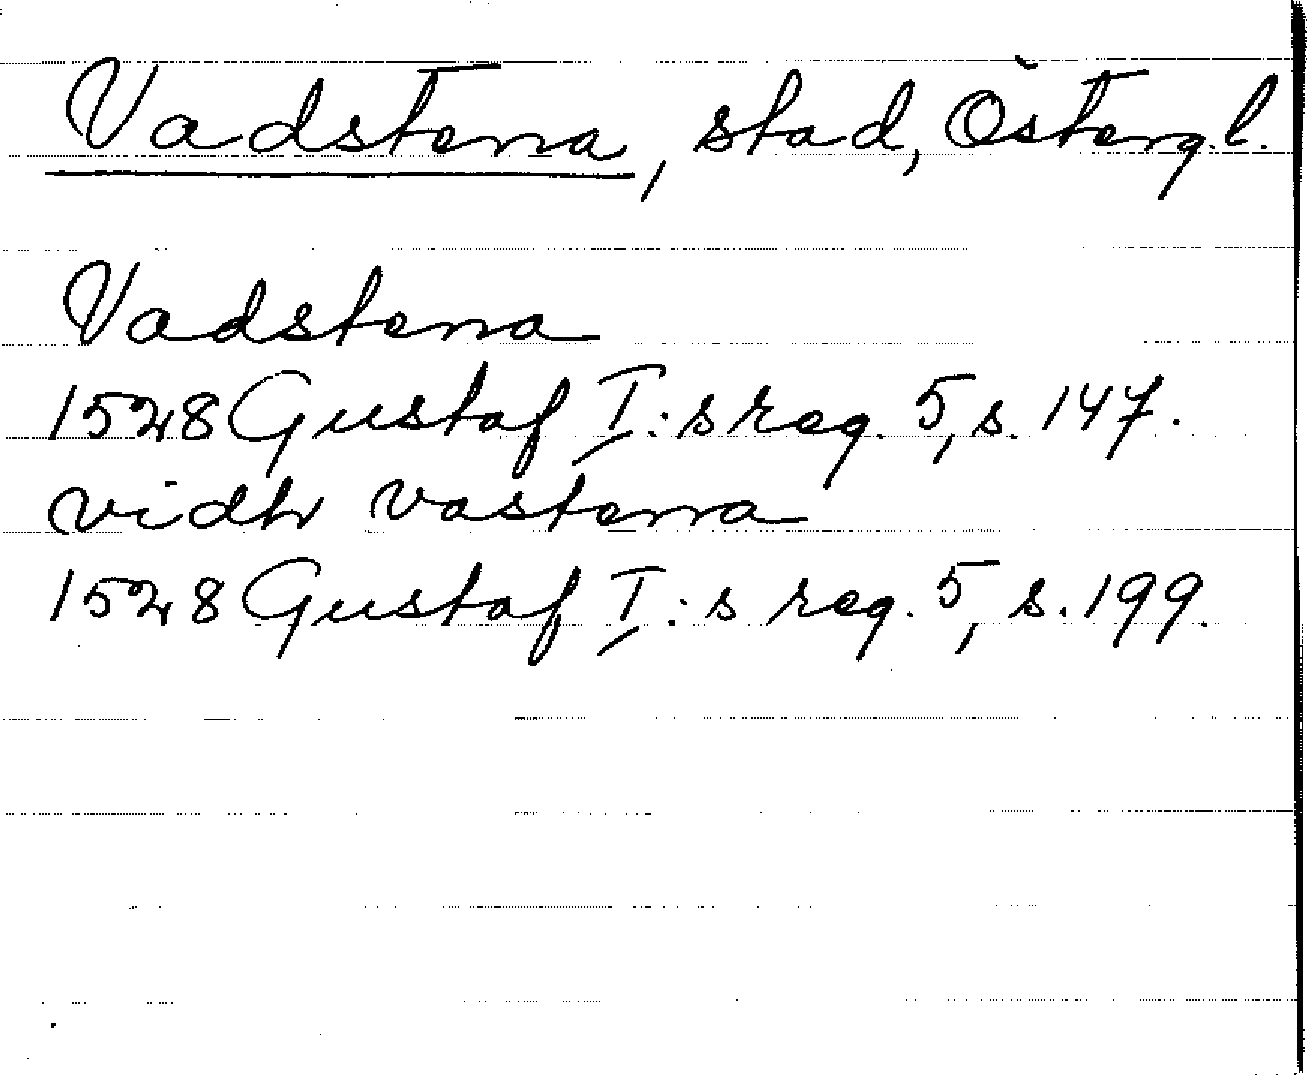 Vadstena, stad, Östergl.
Vadstena
1528 Gustaf I:s reg. 5, s. 147.
vidh vastena
1528 Gustaf I:s reg. 5, s. 199.